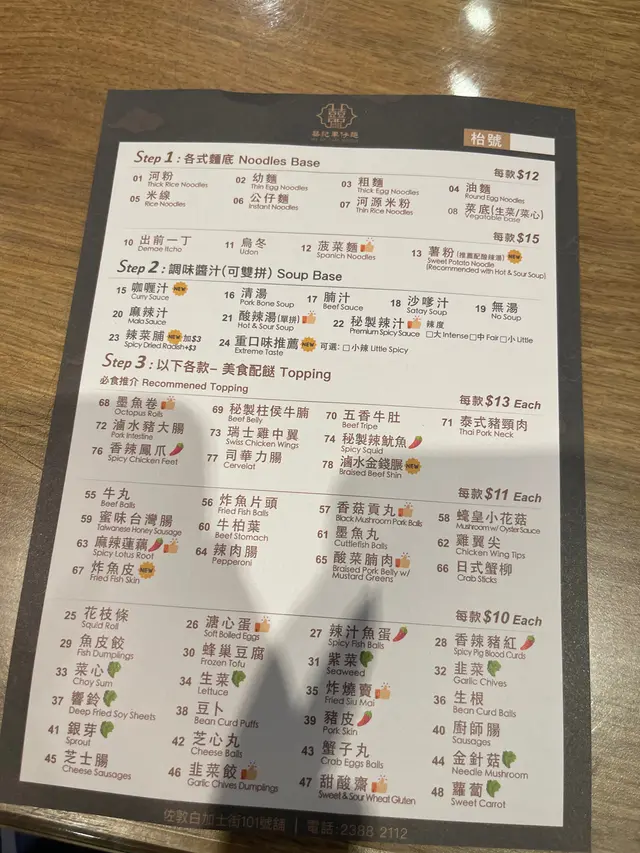 枱號
Step 1 : 各式麵底 Noodles Base
每款 $12
01 河粉 Thick Rice Noodles
02 幼麵 Thin Egg Noodles
03 粗麵 Thick Egg Noodles
04 油麵 Round Egg Noodles
05 米線 Rice Noodles
06 公仔麵 Instant Noodles
07 河源米粉 Thin Rice Noodles
08 菜底(生菜/菜心) Vegetable base
每款 $15
10 出前一丁 Demae Itcho
11 烏冬 Udon
12 菠菜麵 Spinach Noodles
13 薯粉 (推薦配酸辣湯) NEW Sweet Potato Noodle (Recommended with Hot & Sour Soup)
Step 2 : 調味醬汁(可雙拼) Soup Base
15 咖喱汁 NEW Curry Sauce
16 清湯 Pork Bone Soup
17 腩汁 Beef Sauce
18 沙嗲汁 Satay Soup
19 無湯 No Soup
20 麻辣汁 Mala Sauce
21 酸辣湯(單拼) Hot & Sour Soup
22 秘製辣汁 辣度 Premium Spicy Sauce □大 Intense □中 Fair □小 Little
23 辣菜脯 NEW 加$3 Spicy Dried Radish+$3
24 重口味推薦 NEW 可選: □小辣 Little Spicy Extreme Taste
Step 3 : 以下各款- 美食配餸 Topping
必食推介 Recommened Topping
每款 $13 Each
68 墨魚卷 Octopus Rolls
69 秘製柱侯牛腩 Beef Belly
70 五香牛肚 Beef Tripe
71 泰式豬頸肉 Thai Pork Neck
72 滷水豬大腸 Pork Intestine
73 瑞士雞中翼 Swiss Chicken Wings
74 秘製辣魷魚 Spicy Squid
76 香辣鳳爪 Spicy Chicken Feet
77 司華力腸 Cervelat
78 滷水金錢𦟌 NEW Braised Beef Shin
每款 $11 Each
55 牛丸 Beef Balls
56 炸魚片頭 Fried Fish Balls
57 香菇貢丸 Black Mushroom Pork Balls
58 蠔皇小花菇 Mushroom w/ Oyster Sauce
59 蜜味台灣腸 Taiwanese Honey Sausage
60 牛柏葉 Beef Stomach
61 墨魚丸 Cuttlefish Balls
62 雞翼尖 Chicken Wing Tips
63 麻辣蓮藕 Spicy Lotus Root
64 辣肉腸 Pepperoni
65 酸菜腩肉 Braised Pork Belly w/ Mustard Greens
66 日式蟹柳 Crab Sticks
67 炸魚皮 NEW Fried Fish Skin
每款 $10 Each
25 花枝條 Squid Roll
26 溏心蛋 Soft Boiled Eggs
27 辣汁魚蛋 Spicy Fish Balls
28 香辣豬紅 Spicy Pig Blood Curds
29 魚皮餃 Fish Dumplings
30 蜂巢豆腐 Frozen Tofu
31 紫菜 Seaweed
32 韭菜 Garlic Chives
33 菜心 Choy Sum
34 生菜 Lettuce
35 炸燒賣 Fried Siu Mai
36 生根 Bean Curd Balls
37 響鈴 Deep Fried Soy Sheets
38 豆卜 Bean Curd Puffs
39 豬皮 Pork Skin
40 廚師腸 Sausages
41 銀芽 Sprout
42 芝心丸 Cheese Balls
43 蟹子丸 Crab Eggs Balls
44 金針菇 Needle Mushroom
45 芝士腸 Cheese Sausages
46 韭菜餃 Garlic Chives Dumplings
47 甜酸齋 Sweet & Sour Wheat Gluten
48 蘿蔔 Sweet Carrot
佐敦白加士街101號舖 | 電話:2388 2112